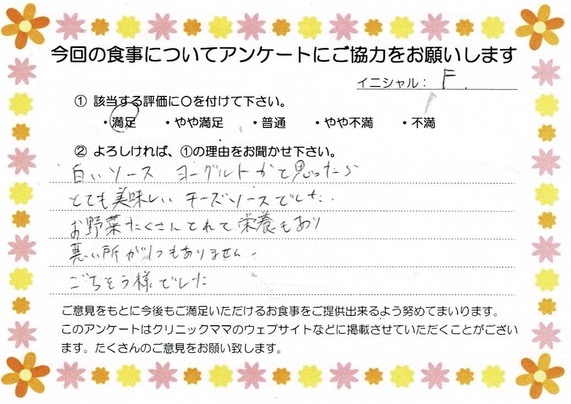 今回の食事についてアンケートにご協力をお願いします
イニシャル： F.
① 該当する評価に〇を付けて下さい。
・満足 ・やや満足 ・普通 ・やや不満 ・不満
② よろしければ、①の理由をお聞かせ下さい。
白いソース ヨーグルトかと思ったら
とても美味しい チーズソースでした.
お野菜たくさんとれて栄養もあり
悪い所が1つもありません.
ごちそう様でした
ご意見をもとに今後もご満足いただけるお食事をご提供出来るよう努めてまいります。
このアンケートはクリニックママのウェブサイトなどに掲載させていただくことがござい
ます。たくさんのご意見をお願い致します。